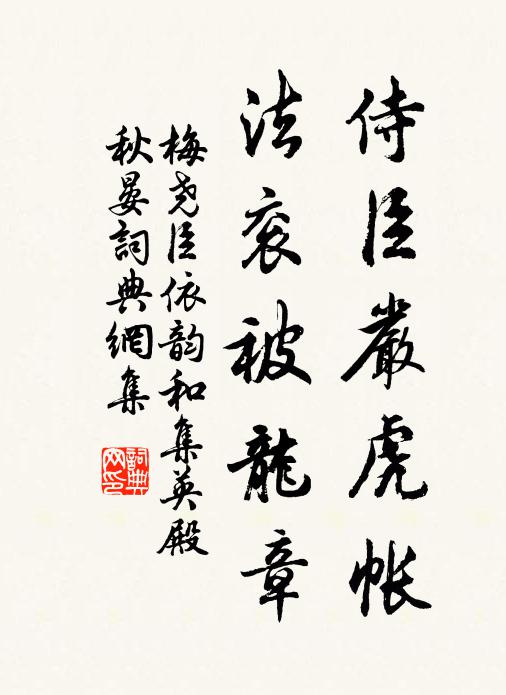 侍臣嚴虎帐
法衮被龍章
梅尧臣依韵和集英殿
秋晏詞典網集
詞典网印